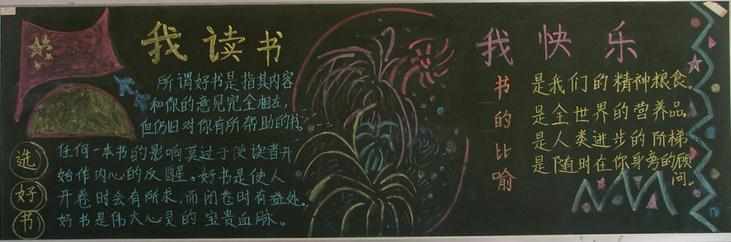 我读书
我快乐
所谓好书是指其内容
和你的意见完全相左,
但仍旧对你有所帮助的书。
选好书
任何一本书的影响莫过于使读者开
始作内心的反醒。好书是使人
开卷时会有所求,而闭卷时有益处。
好书是伟大心灵的宝贵血脉。
书的比喻
是我们的精神粮食,
是全世界的营养品,
是人类进步的阶梯,
是随时在你身旁的顾
问。